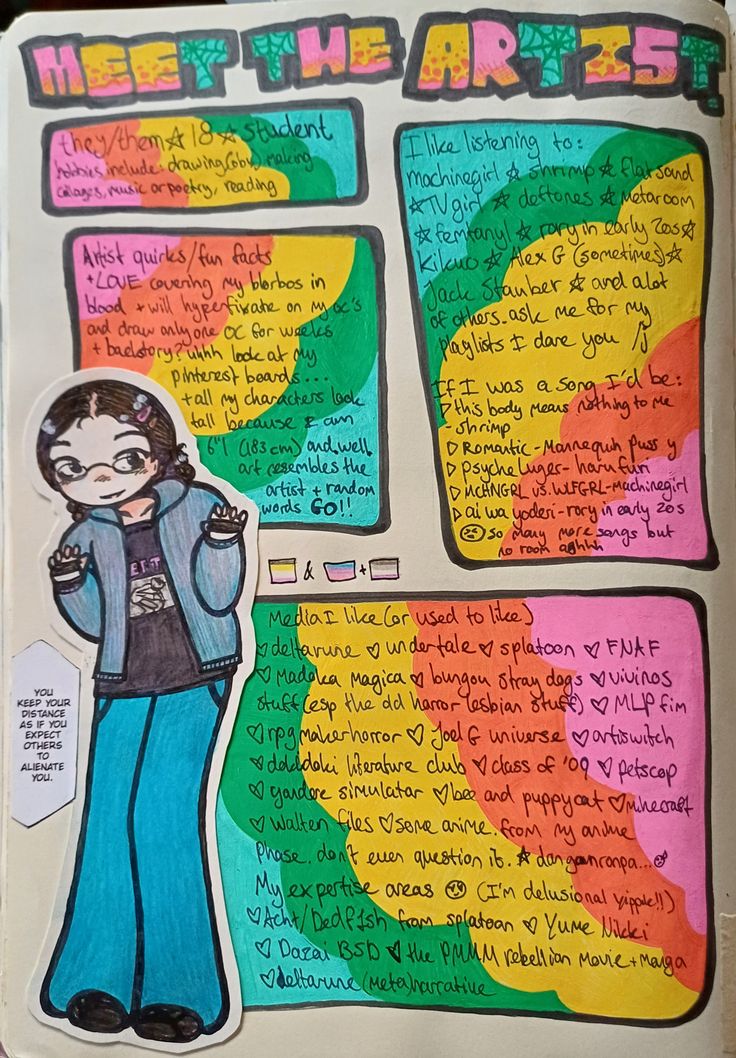 MEET THE ARTIST.
they/them ☆ 18 ☆ student
hobbies include: drawing (obv), making
collages, music or poetry, reading
Artist quirks/fun facts
+ LOVE covering my blorbos in
blood + will hyperfixate on my oc's
and draw only one OC for weeks
+ backstory? uhhh look at my
pinterest boards...
+ all my characters look
tall because I am
6"1 (183cm) and well
art resembles the
artist + random
words GO!!
I like listening to:
machinegirl ☆ shrimp ☆ flatsound
☆ TV girl ☆ deftones ☆ metaroom
☆ femtanyl ☆ rory in early 20s ☆
Kikuo ☆ Alex G (sometimes) ☆
Jack Stauber ☆ and alot
of others. ask me for my
playlists I dare you /j
If I was a song I'd be:
▷ this body means nothing to me
- shrimp
▷ Romantic - Mannequin puss y
▷ psyche luger - harufuri
▷ MCHNGRL vs. WLFGRL - machinegirl
▷ ai wa yodesi - rory in early 20s
so many more songs but
no room aghhh
& +
Media I like (or used to like)
♡ deltarune ♡ undertale ♡ splatoon ♡ FNAF
♡ Madoka magica ♡ bungou stray dogs ♡ vivinos
stuff (esp the old horror lesbian stuff) ♡ MLP fim
♡ rpgmakerhorror ♡ Joel G universe ♡ artiswitch
♡ dokidoki literature club ♡ class of '09 ♡ petscop
♡ yandere simulator ♡ bee and puppycat ♡ minecraft
♡ walten files ♡ some anime. from my anime
phase. don't even question it. ☆ danganronpa...
My expertise areas (I'm delusional yippie!!)
♡ Acht/Dedf1sh from splatoon ♡ Yume Nikki
♡ Dazai BSD ♥ the PMMM rebellion movie + manga
♡ deltarune (meta)narrative
YOU
KEEP YOUR
DISTANCE
AS IF YOU
EXPECT
OTHERS
TO
ALIENATE
YOU.